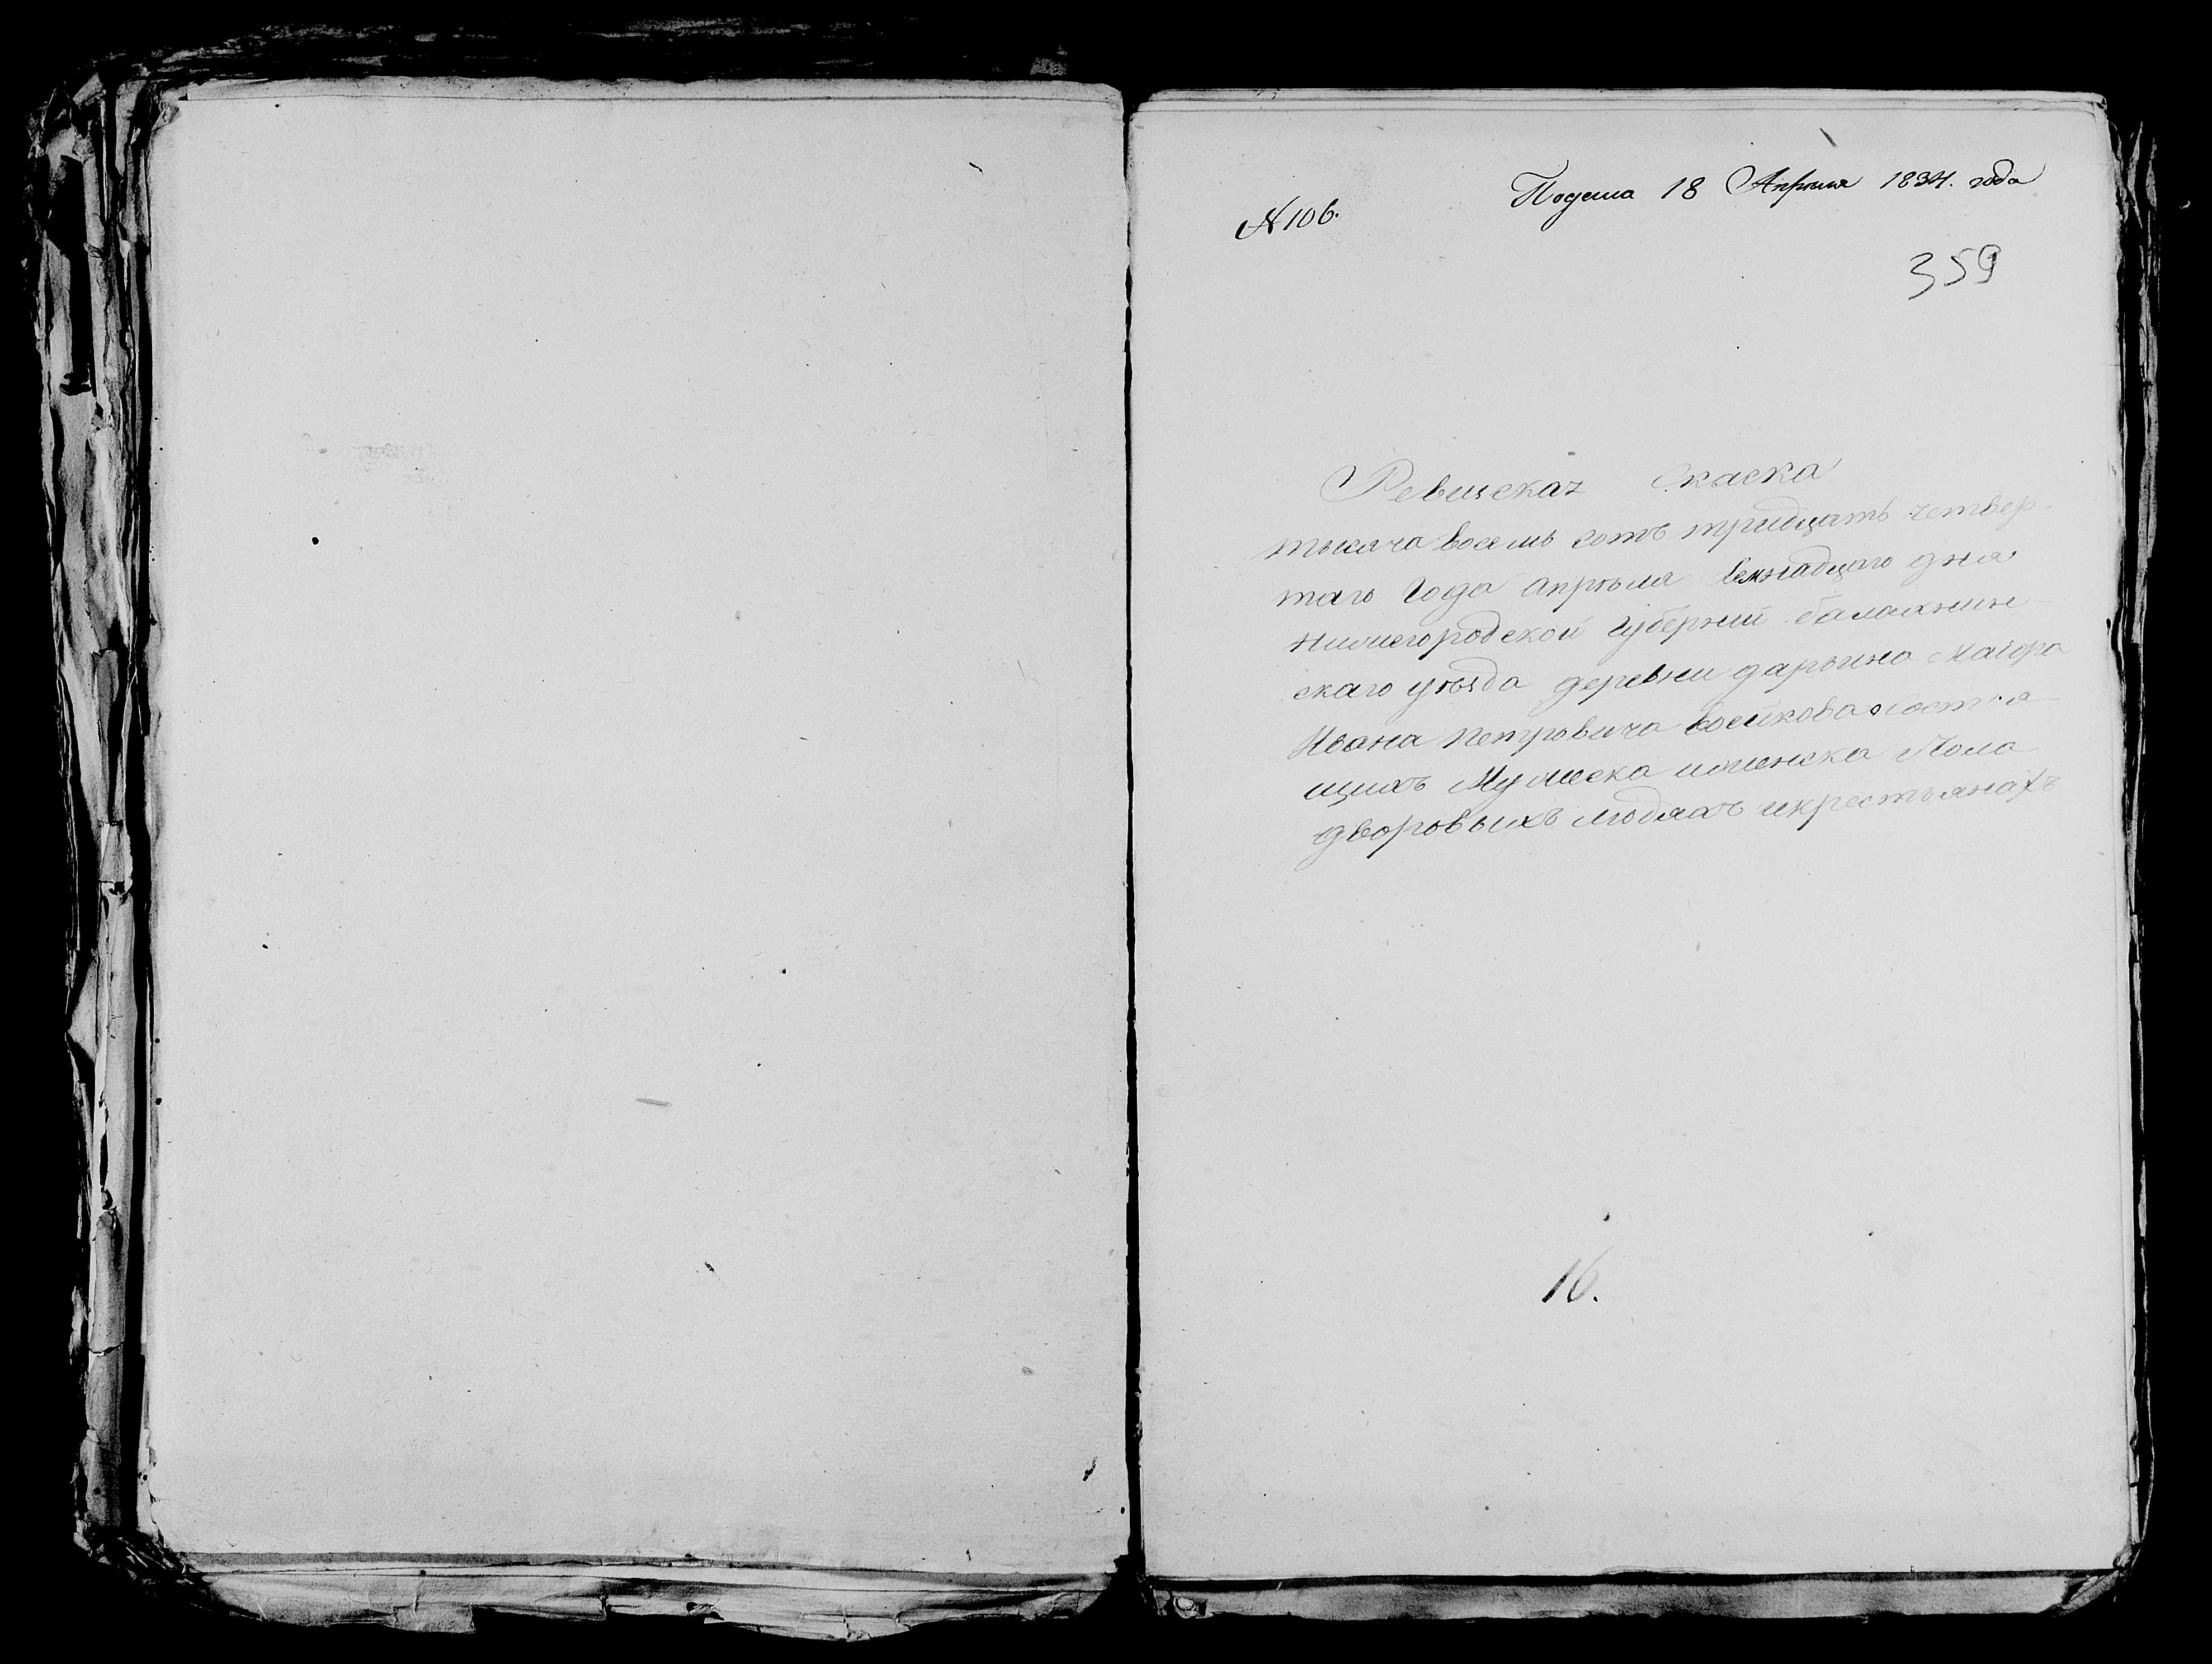 Подена 18 Апреля 1834. года
№ 106.
359
Ревиская Скаска
тысяча восемь сотъ тридцать четвер-
таго года апреля дня
нижегородской губернии балахнин
скаго уезда деревни дарьина маіора
Ивана петровича воейкова состоя
щихъ Мужеска иженска Пола
дворовыхъ людяхъ икрестьянахъ
16.